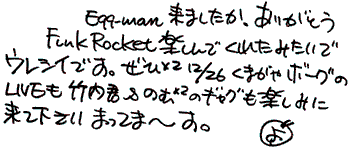 Egg-man 来ましたか、ありがとう
Funk Rocket 楽しんでくれたみたいで
ウレシイです。ぜひ×2 12/26 くまがやボーグの
LIVEも 竹内君&のむ×2のギャグも楽しみに
来て下さい まってまーす。
よ